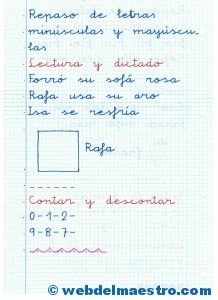 Repaso de letras
minúsculas y mayúscu
las
Lectura y dictado
Forró su sofá rosa
Rafa usa su aro
Isa se resfría
Rafa
Contar y descontar
0-1-2-
9-8-7-
© webdelmaestro.com